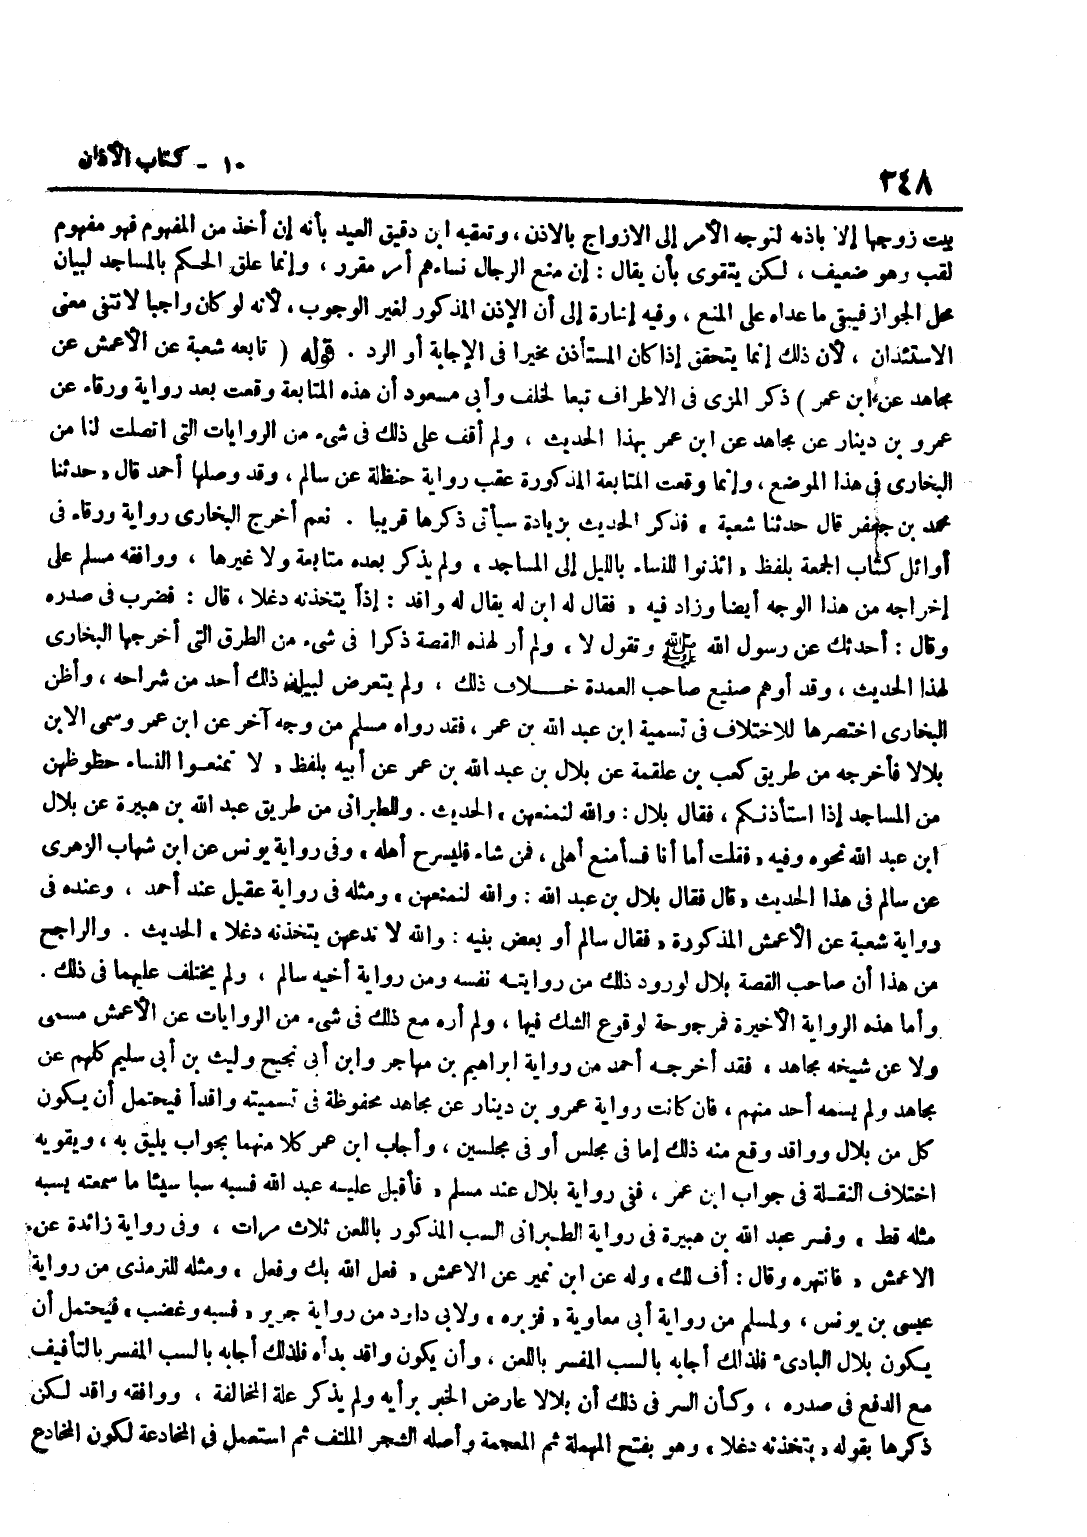 ١٠ - كتاب الأذان
٣٤٨
بيت زوجها إلا باذنه لتوجه الأمر إلى الازواج بالاذن ، وتعقبه ابن دقيق العيد بأنه إن أخذ من المفهوم فهو مفهوم
لقب وهو ضعيف ، لكن يتقوى بأن يقال : إن منع الرجال نساءهم أمر مقرر ، وإنما علق الحكم بالمساجد لبيان
محل الجواز فيبقى ما عداه على المنع ، وفيه إشارة إلى أن الإذن المذكور لغير الوجوب ، لأنه لو كان واجبا لانتفى معنى
الاستئذان ، لأن ذلك إنما يتحقق إذا كان المستأذن مخيرا فى الإجابة أو الرد . قوله ( تابعه شعبة عن الأعمش عن
مجاهد عن ابن عمر ) ذكر المزى فى الاطراف تبعا لخلف وأبي مسعود أن هذه المتابعة وقعت بعد رواية ورقاء عن
عمرو بن دينار عن مجاهد عن ابن عمر بهذا الحديث ، ولم أقف على ذلك فى شىء من الروايات التى اتصلت لنا من
البخارى فى هذا الموضع ، وإنما وقعت المتابعة المذكورة عقب رواية حنظلة عن سالم ، وقد وصلها أحمد قال « حدثنا
محمد بن جعفر قال حدثنا شعبة » فذكر الحديث بزيادة سيأتى ذكرها قريبا . نعم أخرج البخارى رواية ورقاء فى
أوائل كتاب الجمعة بلفظ « ائذنوا للنساء بالليل إلى المساجد » ولم يذكر بعده متابعة ولا غيرها ، ووافقه مسلم على
إخراجه من هذا الوجه أيضا وزاد فيه « فقال له ابن له يقال له واقد : إذاً يتخذنه دغلا ، قال : فضرب فى صدره
وقال : أحدثك عن رسول الله ﷺ وتقول لا » ولم أر لهذه القصة ذكرا فى شىء من الطرق التى أخرجها البخارى
لهذا الحديث ، وقد أوهم صنيع صاحب العمدة خلاف ذلك ، ولم يتعرض لبيان ذلك أحد من شراحه ، وأظن
البخارى اختصرها للاختلاف فى تسمية ابن عبد الله بن عمر ، فقد رواه مسلم من وجه آخر عن ابن عمر وسمى الابن
بلالا فأخرجه من طريق كعب بن علقمة عن بلال بن عبد الله بن عمر عن أبيه بلفظ « لا تمنعوا النساء حظوظهن
من المساجد إذا استأذنكم ، فقال بلال : والله لنمنعهن » الحديث . وللطبرانى من طريق عبد الله بن هبيرة عن بلال
ابن عبد الله نحوه وفيه « فقلت أما أنا فسأمنع أهلى ، فمن شاء فليسرح أهله » وفى رواية يونس عن ابن شهاب الزهرى
عن سالم فى هذا الحديث « قال فقال بلال بن عبد الله : والله لنمنعهن » ومثله فى رواية عقيل عند أحمد ، وعنده فى
رواية شعبة عن الأعمش المذكورة « فقال سالم أو بعض بنيه : والله لا ندعهن يتخذنه دغلا » الحديث . والراجح
من هذا أن صاحب القصة بلال لورود ذلك من روايته نفسه ومن رواية أخيه سالم ، ولم يختلف عليهما فى ذلك .
وأما هذه الرواية الأخيرة فمرجوحة لوقوع الشك فيها ، ولم أره مع ذلك فى شىء من الروايات عن الأعمش مسمى
ولا عن شيخه مجاهد ، فقد أخرجه أحمد من رواية ابراهيم بن مهاجر وابن أبى نجيح وليث بن أبى سليم كلهم عن
مجاهد ولم يسمه أحد منهم ، فان كانت رواية عمرو بن دينار عن مجاهد محفوظة فى تسميته واقداً فيحتمل أن يكون
كل من بلال وواقد وقع منه ذلك إما فى مجلس أو فى مجلسين ، وأجاب ابن عمر كلا منهما بجواب يليق به ، ويقويه
اختلاف النقلة فى جواب ابن عمر ، ففى رواية بلال عند مسلم « فأقبل عليه عبد الله فسبه سبا سيئا ما سمعته يسبه
مثله قط » وفسر عبد الله بن هبيرة فى رواية الطبرانى السب المذكور باللعن ثلاث مرات ، وفى رواية زائدة عن
الاعمش « فانتهره وقال : أف لك » وله عن ابن نمير عن الاعمش « فعل الله بك وفعل » ومثله للترمذى من رواية
عيسى بن يونس ، ولمسلم من رواية أبى معاوية « فزبره » ولابى داود من رواية جرير « فسبه وغضب » فيحتمل أن
يكون بلال البادىء فلذلك أجابه بالسب المفسر باللعن ، وأن يكون واقد بدأه فلذلك أجابه بالسب المفسر بالتأفيف
مع الدفع فى صدره ، وكأن السر فى ذلك أن بلالا عارض الخبر برأيه ولم يذكر علة المخالفة ، ووافقه واقد لكن
ذكرها بقوله « يتخذنه دغلا » وهو بفتح المهملة ثم المعجمة وأصله الشجر الملتف ثم استعمل فى المخادعة لكون المخادع